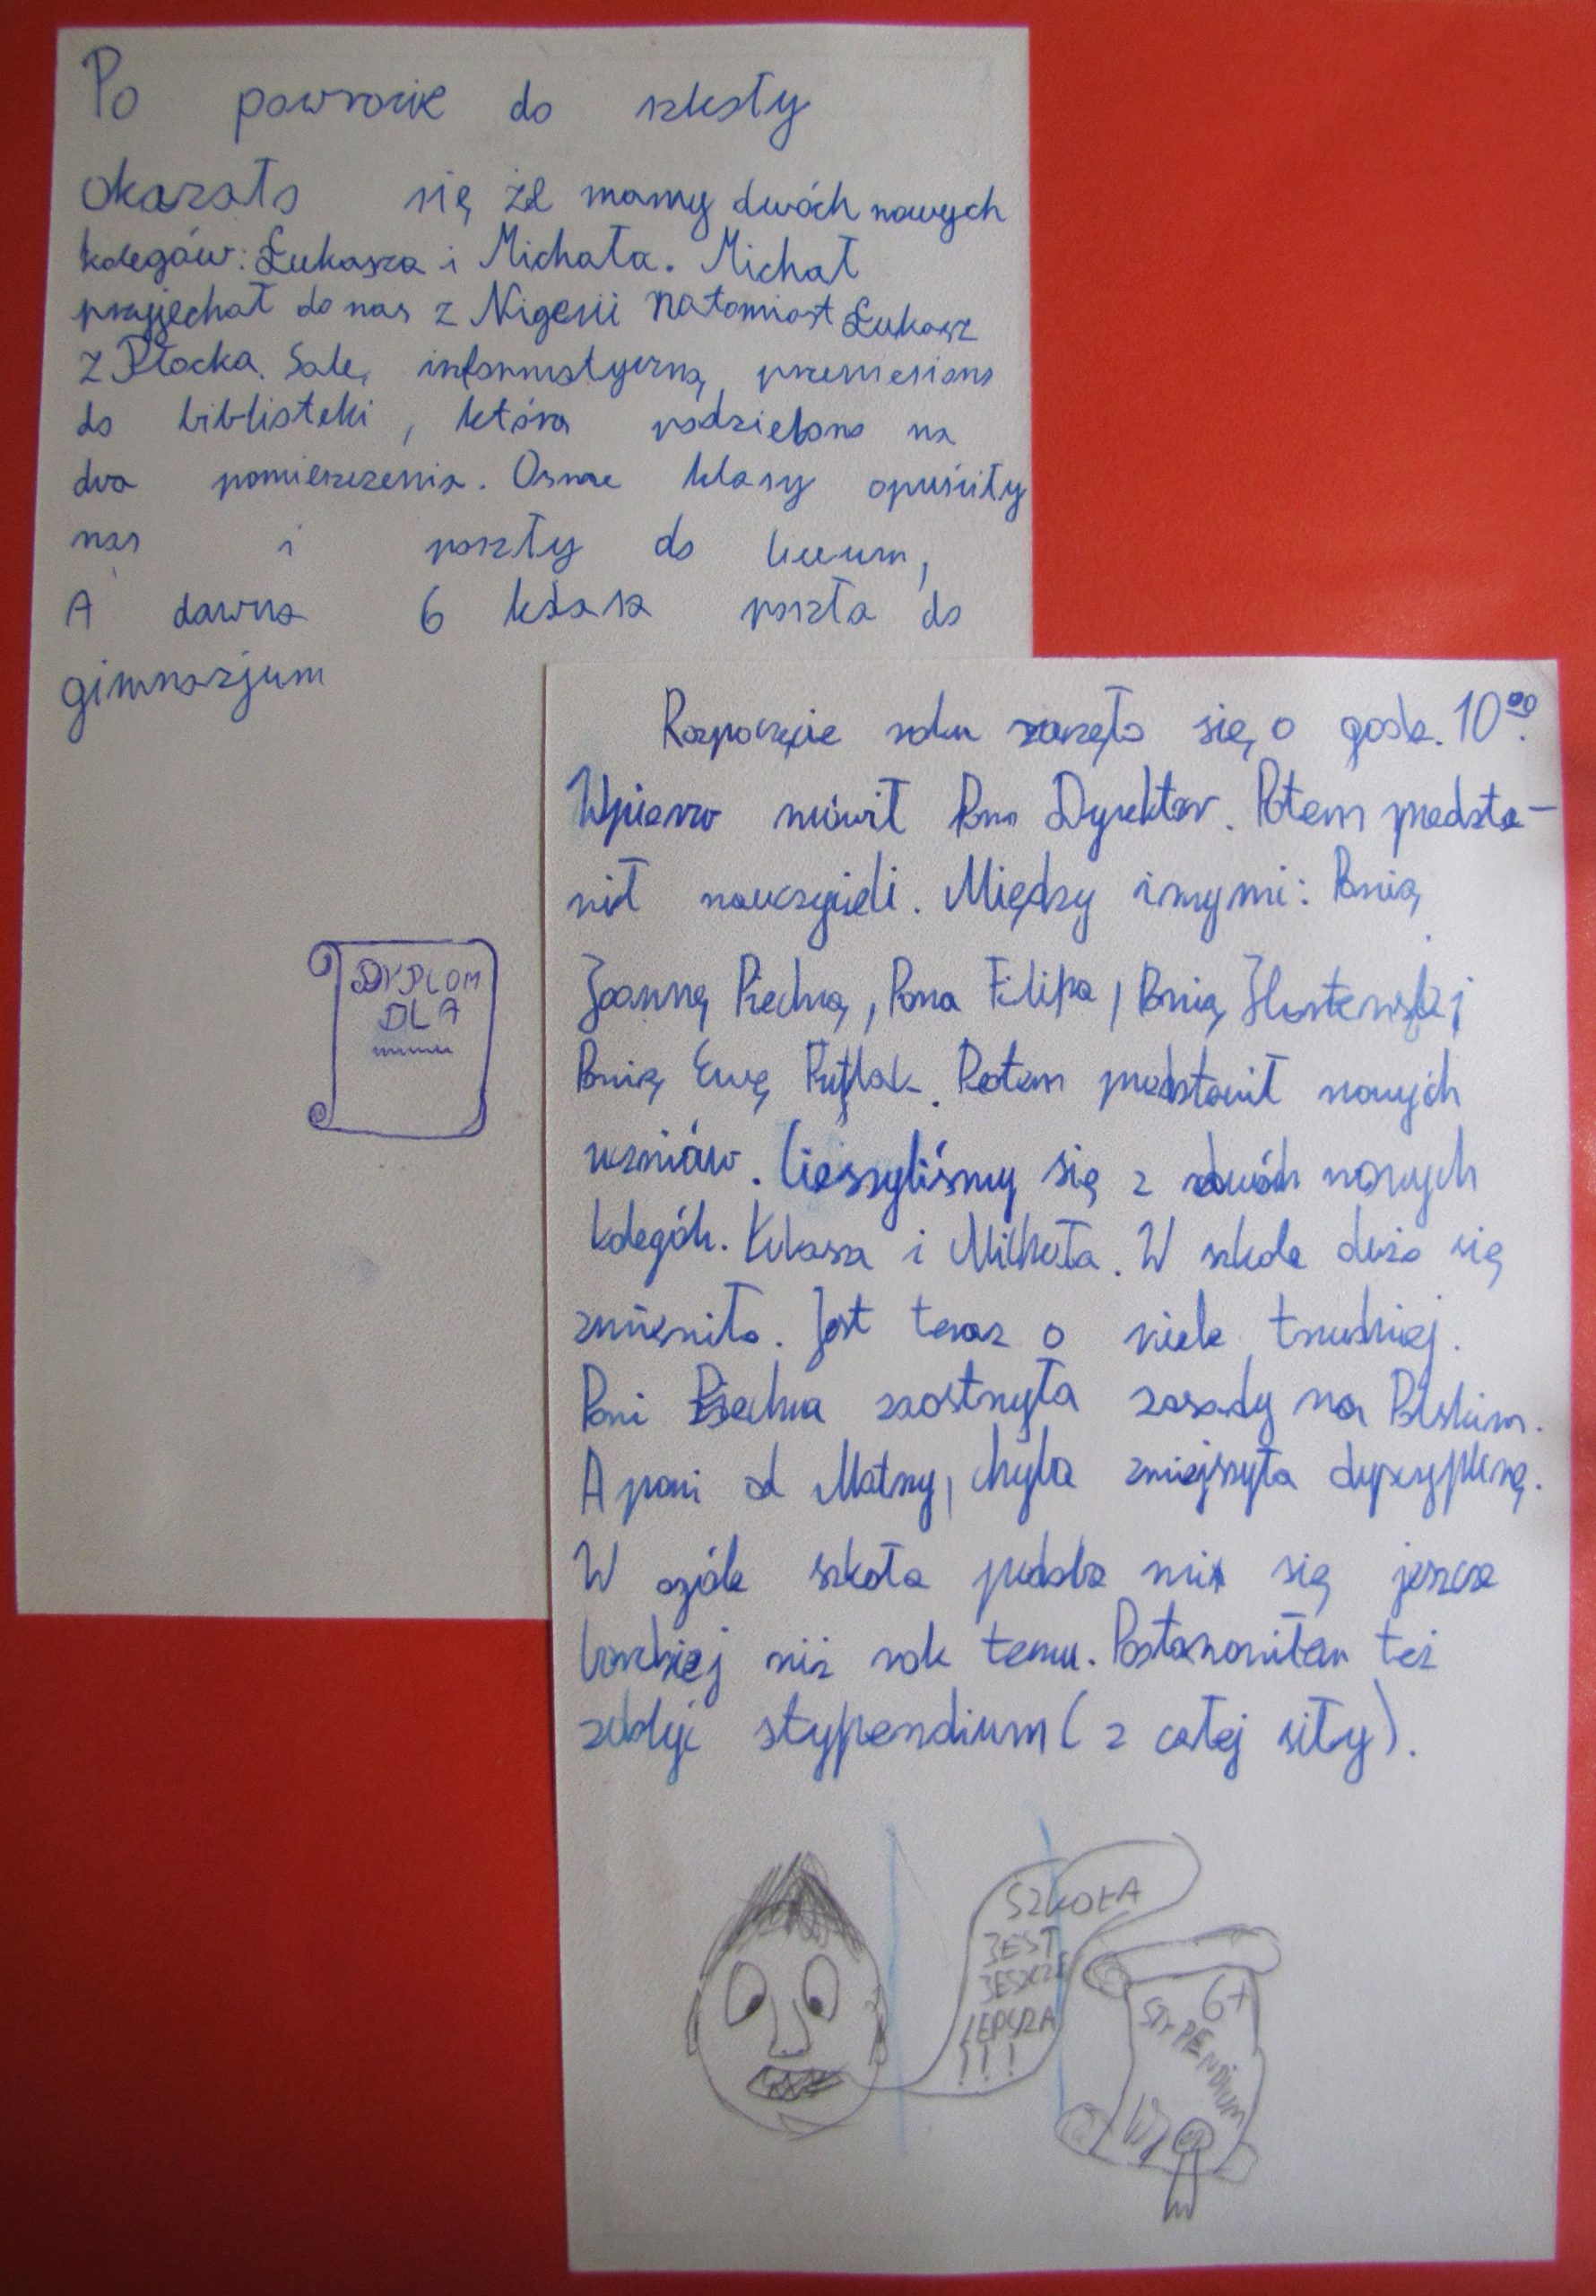 Po powrocie do szkoły
okazało się że mamy dwóch nowych
kolegów: Łukasza i Michała. Michał
przyjechał do nas z Nigerii natomiast Łukasz
z Płocka. Salę informatyczną przeniesiono
do biblioteki, która podzielono na
dwa pomieszczenia. Ósme klasy opuściły
nas i poszły do liceum,
A dawna 6 klasa poszła do
gimnazjum
DYPLOM
DLA
Rozpoczęcie roku zaczęło się o godz. 10⁰⁰.
Wpierw mówił Pan Dyrektor. Potem przedsta-
wił nauczycieli. Między innymi: Panią
Joannę Piechną, Pana Filipa, Panią
Panią Ewę Potem przedstawił nowych
uczniów. Cieszyliśmy się z dwóch nowych
kolegów. Łukasza i Michała. W szkole dużo się
zmieniło. Jest teraz o wiele trudniej.
Pani Piechna zaostrzyła zasady na Polskim.
A pani od Matmy, chyba zmiejszyła dyscyplinę.
W ogóle szkoła podoba mi się jeszcze
bardziej niż rok temu. Postanowiłem też
zdobyć stypendium (z całej siły).
SZKOŁA
JEST
JESZCZE
LEPSZA
!!!
6+
STYPENDIUM